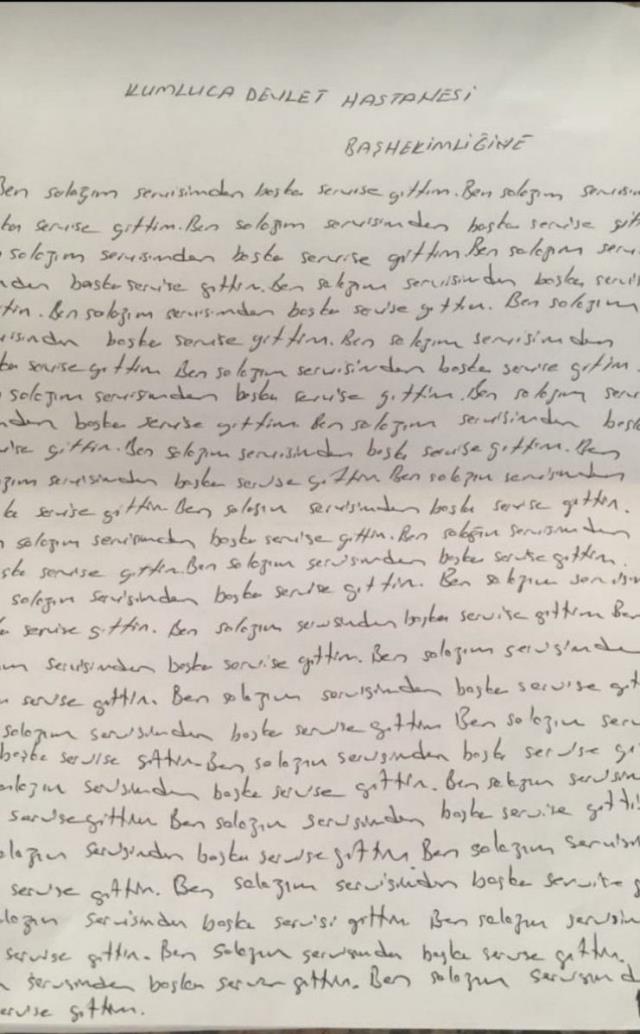 KUMLUCA DEVLET HASTANESİ
BAŞHEKİMLİĞİNE
Ben salağım servisimden başka servise gittim. Ben salağım servisim
ka servise gittim. Ben salağım servisimden başka servise git
salağım servisimden başka servise gittim. Ben salağım serv
nden başka servise gittim. Ben salağım servisimden başka servis
tim. Ben salağım servisimden başka servise gittim. Ben salağım
visimden başka servise gittim. Ben salağım servisimden
ka servise gittim Ben salağım servisimden başka servise gittim.
salağım servisimden başka servise gittim. Ben salağım serv
nden başka servise gittim. Ben salağım servisimden başk
vise gittim. Ben salağım servisimden başka servise gittim. Ben
ğım servisimden başka servise gittim Ben salağım servisimden
ka servise gittim Ben salağım servisimden başka servise gittim.
salağım servisimden başka servise gittim. Ben salağım servisimden
ka servise gittim. Ben salağım servisimden başka servise gittim.
salağım servisimden başka servise gittim. Ben salağım servisim
a servise gittim. Ben salağım servisimden başka servise gittim Ben
ım servisimden başka servise gittim. Ben salağım servisimden
servise gittim. Ben salağım servisimden başka servise git
salağım servisimden başka servise gittim Ben salağım serv
başka servise gittim. Ben salağım servisimden başka servise gi
alağım servisimden başka servise gittim. Ben salağım servisim
servise gittim Ben salağım servisimden başka servise gitti
alağım servisimden başka servise gittim. Ben salağım servisim
servise gittim. Ben salağım servisimden başka servise g
lağım servisimden başka servisi gittim Ben salağım servisim
servise gittim. Ben salağım servisimden başka servise gittim.
servisimden başka servise gittim. Ben salağım servisimd
ervise gittim.